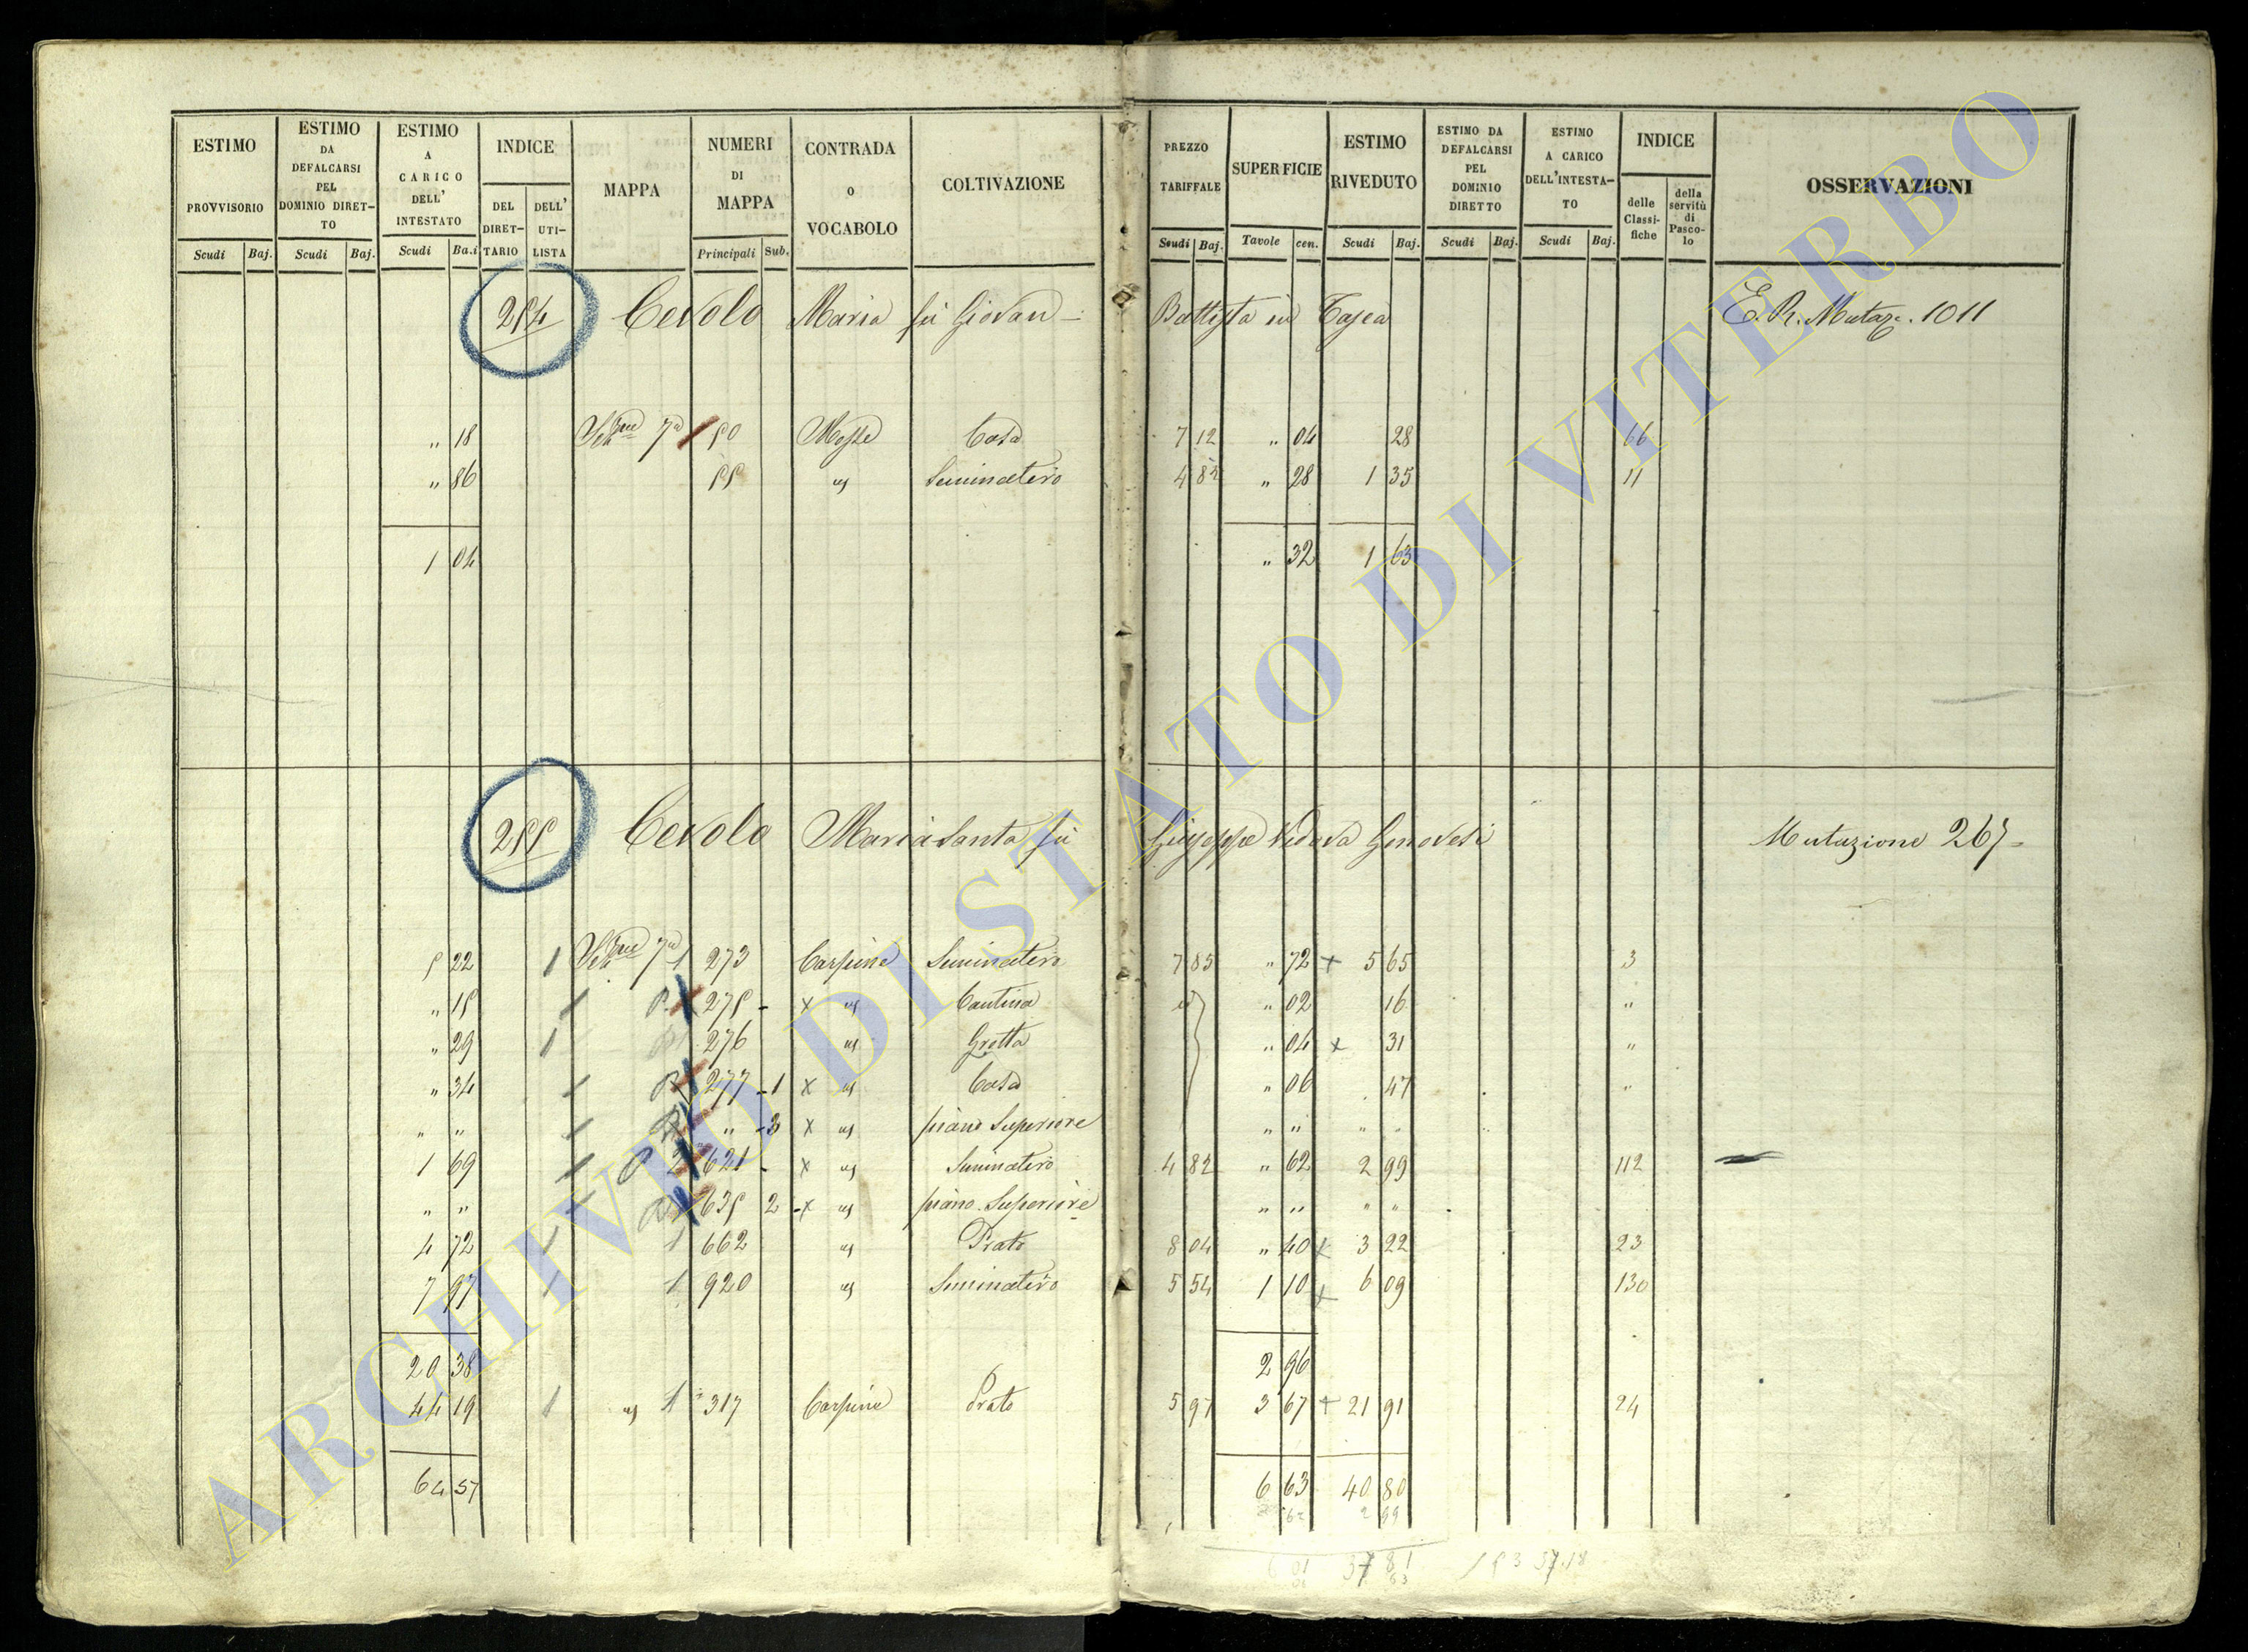 ESTIMO PROVVISORIO
ESTIMO DA DEFALCARSI PEL DOMINIO DIRET-TO
ESTIMO A CARICO DELL' INTESTATO
INDICE
DEL DIRET-TARIO
DELL' UTI-LISTA
MAPPA
NUMERI DI MAPPA
CONTRADA O VOCABOLO
COLTIVAZIONE
PREZZO TARIFFALE
SUPERFICIE
ESTIMO RIVEDUTO
ESTIMO DA DEFALCARSI PEL DOMINIO DIRETTO
ESTIMO A CARICO DELL'INTESTA-TO
INDICE
delle Classi-fiche
della servitù di Pasco-lo
OSSERVAZIONI
Scudi Baj. Scudi Baj. Scudi Ba.i Principali Sub. Scudi Baj. Tavole cen. Scudi Baj. Scudi Baj. Scudi Baj.
254 Cevolo Maria fù Giovan- Battista in Tascà E. R. Mutaz. 1011
" 18 7a 50 Casa 7 12 " 04 28 66
" 86 55 Seminativo 4 82 " 28 1 35 11
1 04 " 32 1 63
255 Cevolo Maria Santa fù Giuseppe Vedova Genovesi Mutazione 267
5 22 1 7a 1 273 Carpine Seminativo 7 85 " 72 + 5 65 3
" 15 1 275 - x Cantina " 02 16 "
" 29 1 276 Grotta " 04 x 31 "
" 34 1 277 -1 x Casa " 06 47 "
" " 1 " -3 x piano Superiore " " " "
1 69 1 621 - x Seminativo 4 82 " 62 2 99 112
" " 1 635 2 -x piano Superiore " " " "
4 72 1 1 662 Prato 8 04 " 40 x 3 22 23
7 97 1 1 920 Seminativo 5 54 1 10 x 6 09 130
20 38 2 96
44 19 1 1 317 Carpine Prato 5 97 3 67 + 21 91 24
64 57 6 63 40 80
2 99
37 81
ARCHIVIO DI STATO DI VITERBO